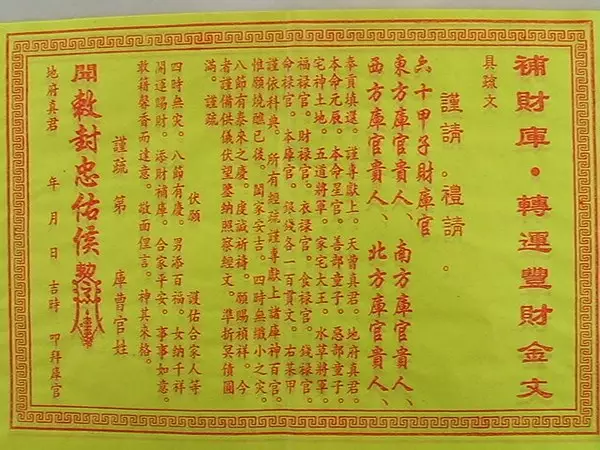 補財庫·轉運豐財金文
具疏文
謹請。禮請。
六十甲子財庫官
東方庫官貴人、南方庫官貴人、
西方庫官貴人、北方庫官貴人、
奉貢填還。謹專獻上。天曹真君。地府真君。
本命元辰。本命星官。善部童子。惡部童子。
宅神土地。五道將軍。家宅大王。水草將軍。
福祿官。財祿官。衣祿官。食祿官。錢祿官。
命祿官。本庫官。銀錢各一百貫文。右某甲
謹依科典。所有經疏謹專獻上諸庫神百官。
惟願燒醮已後。闔家安吉。四時無纖小之災。
八節有泰來之慶。度誠祈禱。願賜禎祥。今
者謹備供儀伏望鑒納照察經文。準折冥債圓
滿。謹疏
伏願
護佑合家人等
四時無災。八節有慶。男添百福。女納千祥
開運賜財。添財補庫。合家平安。事事如意。
敢藉馨香而達意。敬面俚言。神其來格。
謹疏 第 庫曹官姓
聞敕封忠佑侯
地府真君 年 月 日 吉時 叩拜庫官